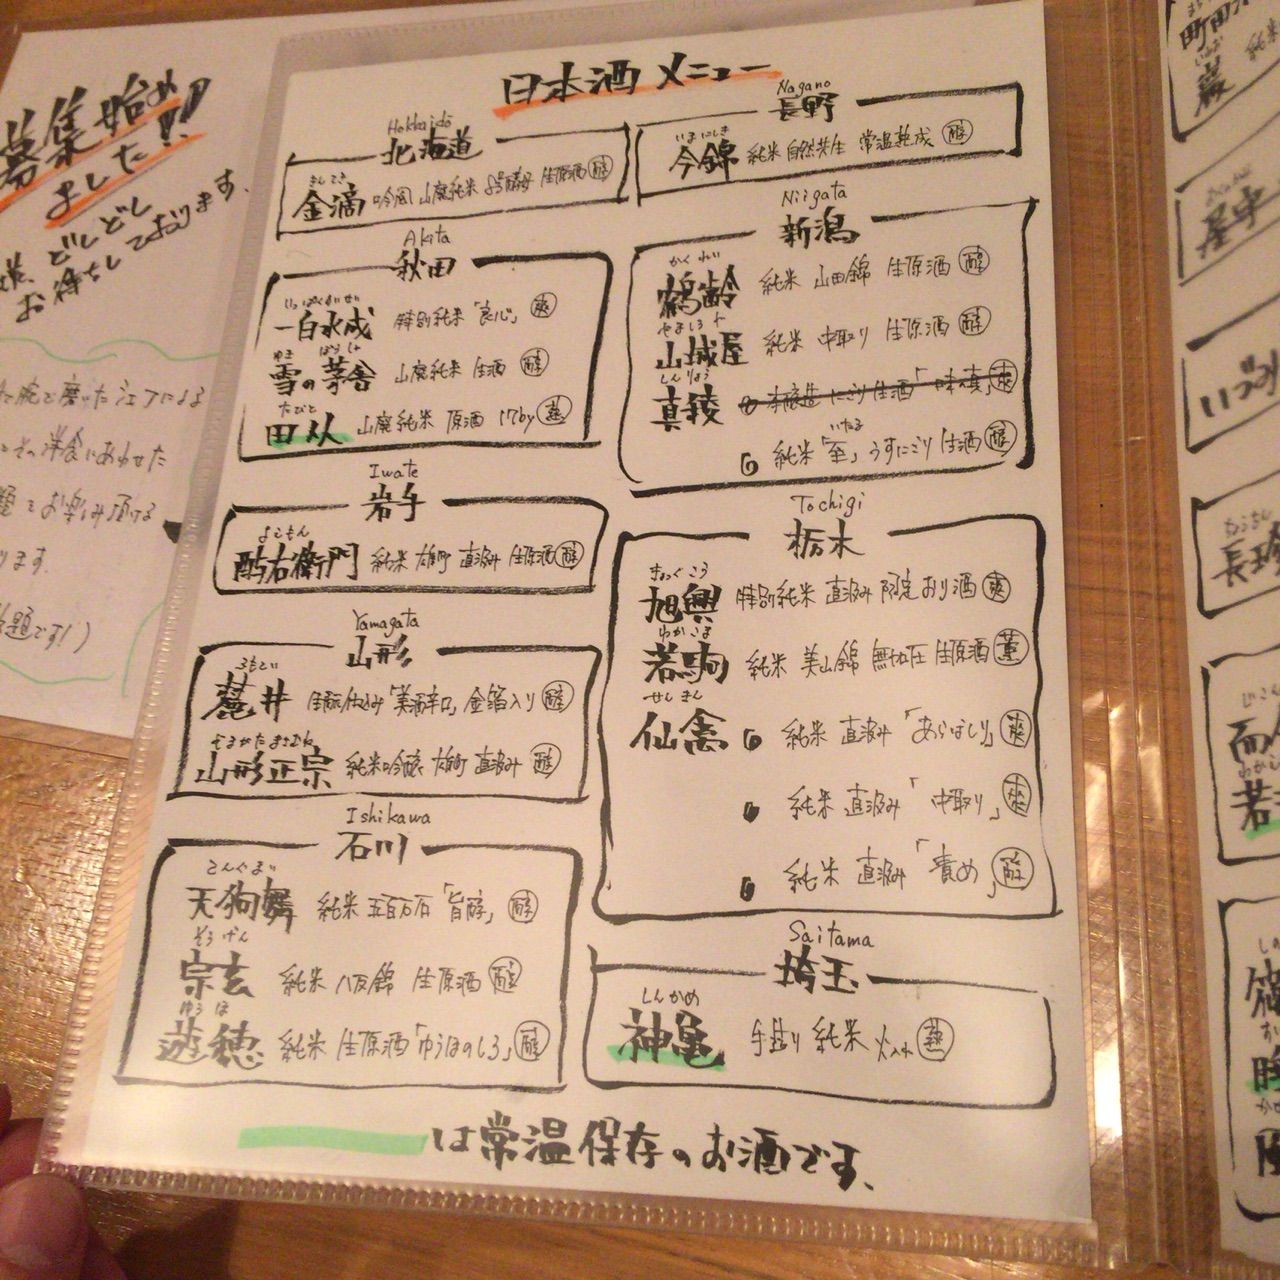 募集始め
ました!!
どしどし
お待ちしております。
腕を磨いた江アによる
その洋食にあわせた
題でお楽しみ頂ける
ります。
題です!)
日本酒メニュー
Hokkaidō
北海道
きんてき
金滴 吟風 山廃純米 9号酵母 生原酒 醇
Akita
秋田
いっぱくすいせい
一白水成 特別純米「良心」 爽
ゆき ぼうしゃ
雪の茅舎 山廃純米 生酒 醇
たびと
田从 山廃純米 原酒 17by 熟
Iwate
岩手
よえもん
酉与右衛門 純米 雄町 直汲み 生原酒 醇
Yamagata
山形
ふもとい
麓井 生酛仕込み「美酒辛口」金箔入り 醇
やまがたまさむね
山形正宗 純米吟醸 雄町 直汲み 醇
Ishikawa
石川
てんぐまい
天狗舞 純米 五百万石「旨醇」 醇
そうげん
宗玄 純米 八反錦 生原酒 醇
ゆうほ
遊穂 純米 生原酒「ゆうほのしろ」 醇
Nagano
長野
いまにしき
今錦 純米 自然共生 常温熟成 醇
Niigata
新潟
かくれい
鶴齢 純米 山田錦 生原酒 醇
やましろや
山城屋 純米 中取り 生原酒 醇
しんりょう
真稜 本醸造 にごり生酒「一味真」 爽
いたる
純米「至」うすにごり 生酒 醇
Tochigi
栃木
きょくこう
旭興 特別純米 直汲み 限定おり酒 爽
わかこま
若駒 純米 美山錦 無加圧 生原酒 薫
せんきん
仙禽 純米 直汲み「あらばしり」 爽
純米 直汲み「中取り」 爽
純米 直汲み「責め」 醇
Saitama
埼玉
しんかめ
神亀 手造り 純米 火入れ 熟
は常温保存のお酒です、
町田
巌
屋守
いづみ
長珍
じこん
而
わかこま
若